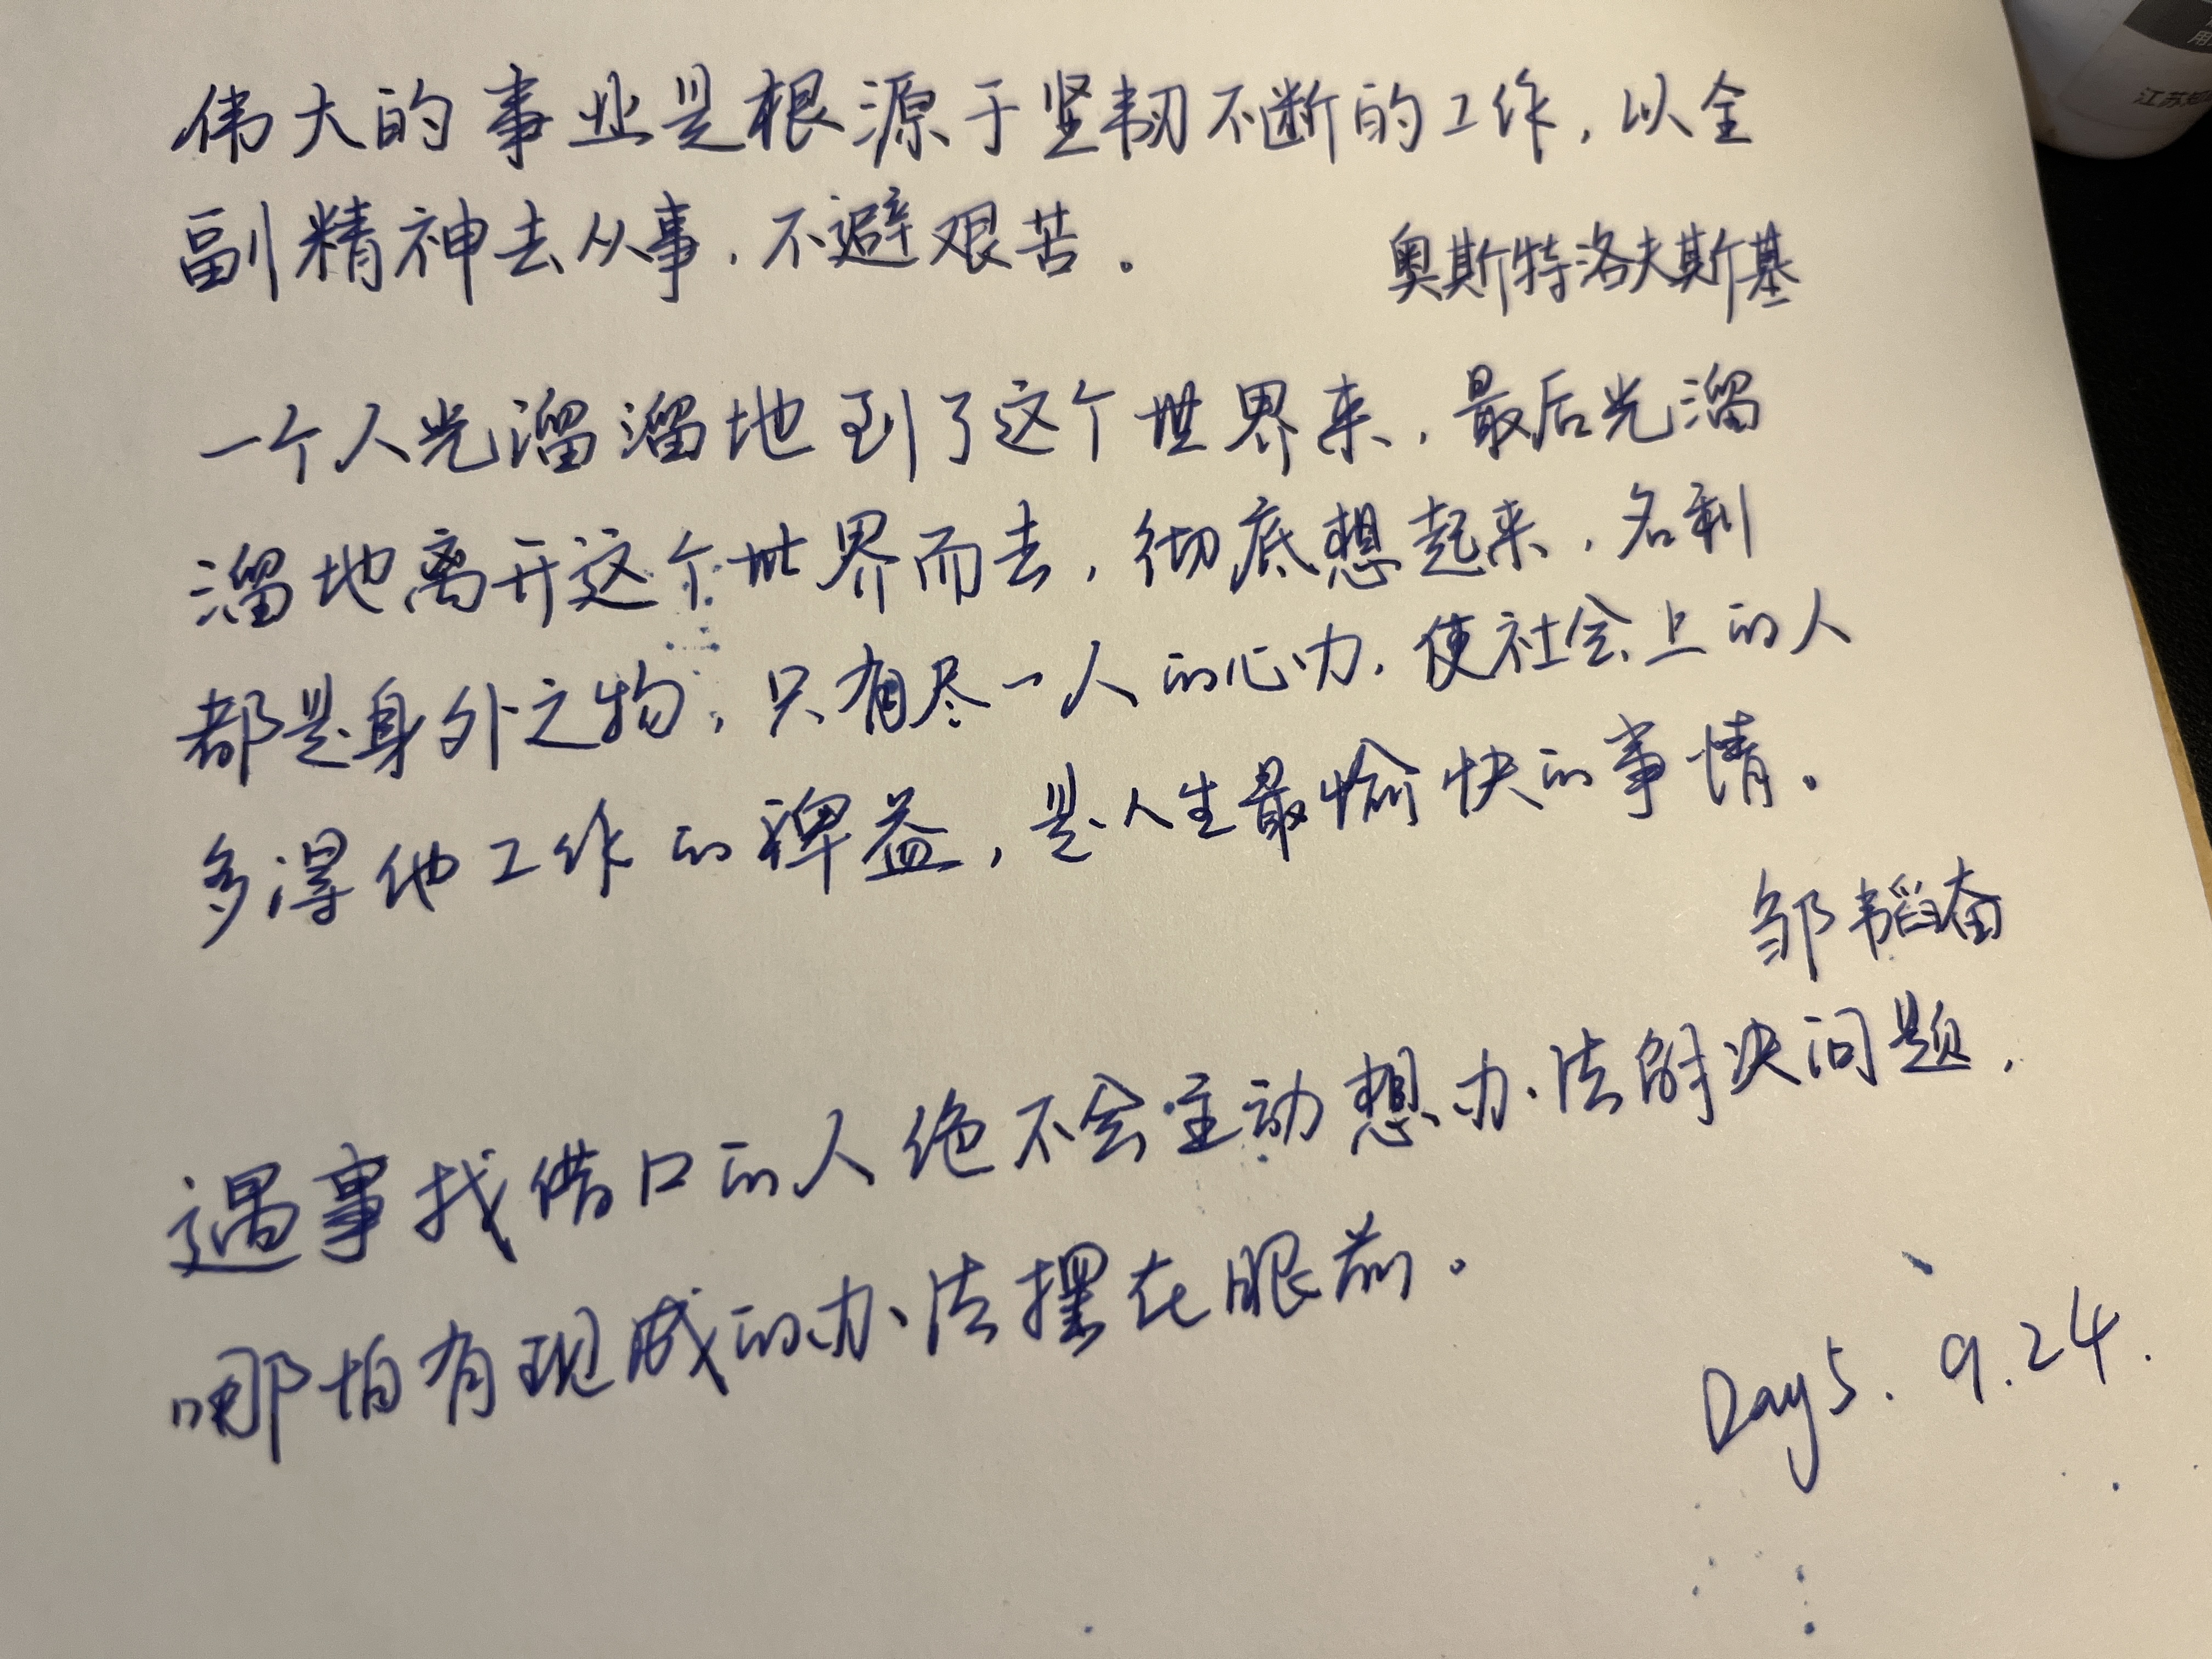 伟大的事业是根源于坚韧不断的工作，以全
副精神去从事，不避艰苦。
奥斯特洛夫斯基
一个人光溜溜地到了这个世界来，最后光溜
溜地离开这个世界而去，彻底想起来，名利
都是身外之物，只有尽一人的心力，使社会上的人
多得他工作的裨益，是人生最愉快的事情。
邹韬奋
遇事找借口的人绝不会主动想办法解决问题，
哪怕有现成的办法摆在眼前。
Day5. 9.24.
用
江苏